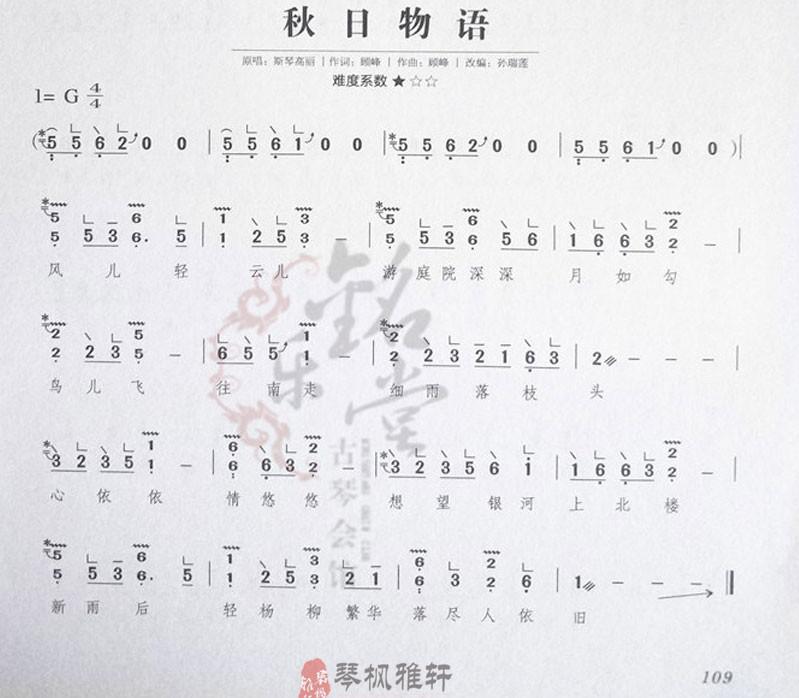 秋日物语
原唱：斯琴高丽 | 作词：顾峰 | 作曲：顾峰 | 改编：孙瑞莲
难度系数 ★☆☆
1= G 4/4
( 5 5 6 2 0 0 | 5 5 6 1 0 0 | 5 5 6 2 0 0 | 5 5 6 1 0 0 )|
5 6 | 1 3 | 5 6 | 2
5 5 3 6. 5 | 1 2 5 3 – | 5 5 3 6 5 6 | 1 6 6 3 2 – |
风 儿 轻 云 儿 游 庭 院 深 深 月 如 勾
2 5 | 1 | 2
2 2 3 5 – | 6 5 5 1 – | 2 2 3 2 1 6 3 | 2 – – |
鸟 儿 飞 往 南 走 细 雨 落 枝 头
1 | 6 2 | 2
3 2 3 5 1 – | 6 6 6 2 – | 3 2 3 5 6 1 | 1 6 6 3 2 – |
心 依 依 情 悠 悠 想 望 银 河 上 北 楼
5 6 | 1 | 6 2
5 5 3 6. 5 | 1 2 5 3 2 1 | 6 3 2 6 | 1 – –
新 雨 后 轻 杨 柳 繁 华 落 尽 人 依 旧
铭乐堂
古琴会馆
琴枫雅轩
109